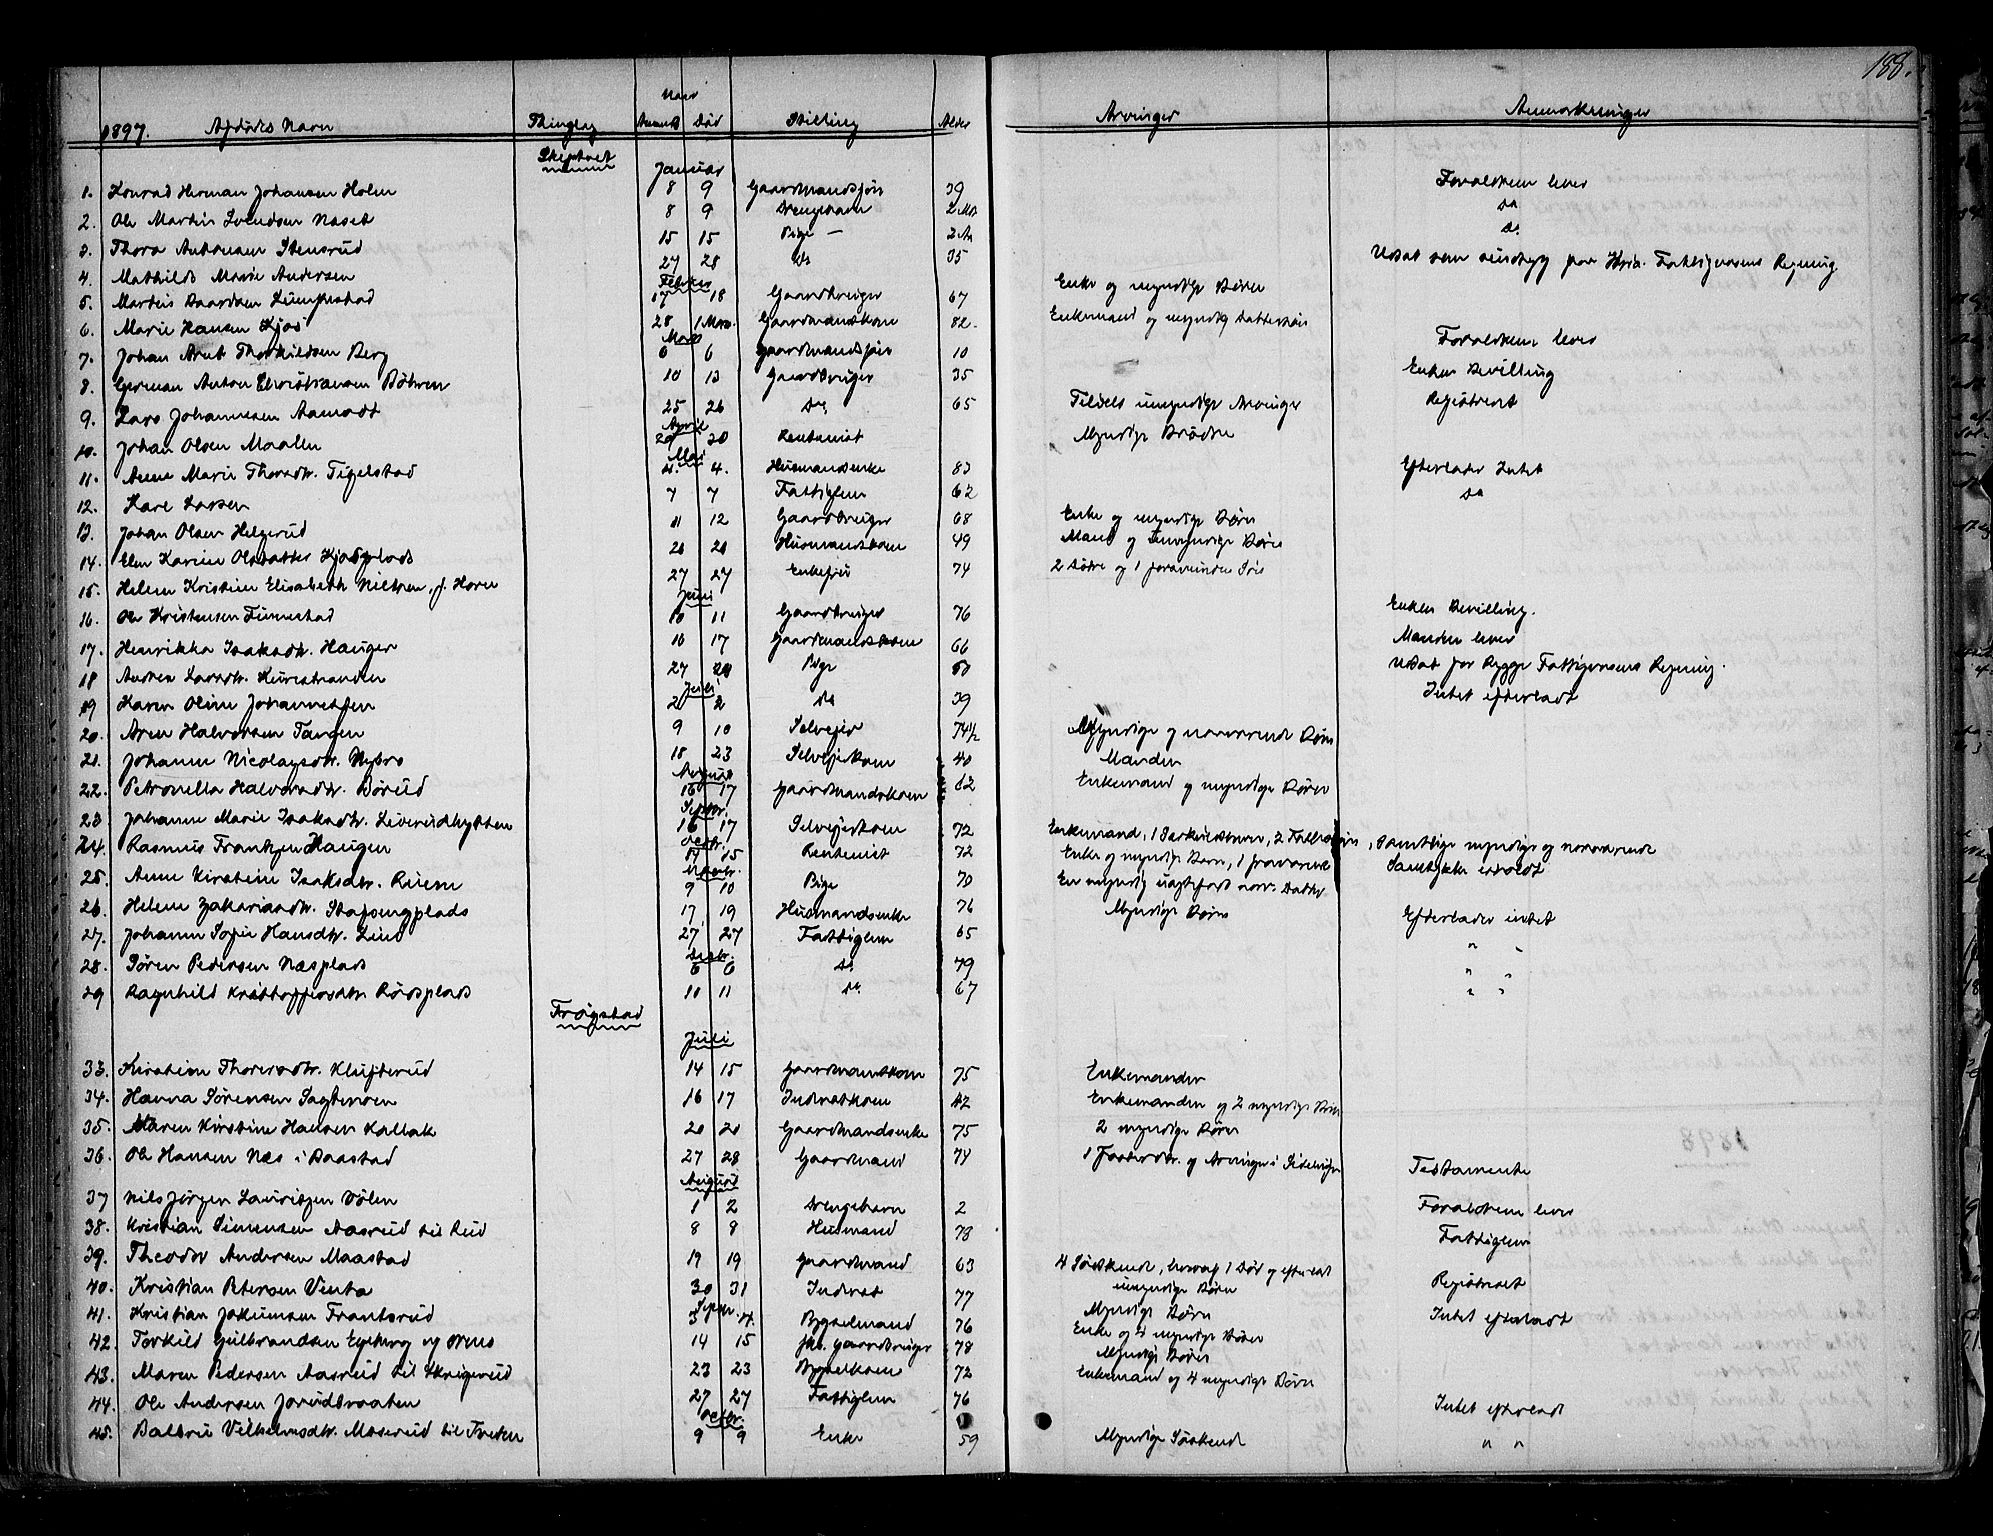 188.
1897. Afdødes Navn Thinglag Naar Anmeldt Død Stilling Alder Arvinger Anmærkninger
Skiptvet
Januar
1. Konrad Herman Johansen Holm 8 9 Gaardmandssøn 39 Forældrene lever
2. Ole Martin Svendsen Næset 8 9 Drengebarn 2 Mdr Do
3. Thora Antonsen Stensrud 15 15 Pige — 2 Do
4. Mathilde Marie Andersen 27 28 Do 35 Udsat som sindsyg paa Kria. Fattigvæsens Regning
Februar
5. Martin 17 18 Gaardbruger 67 Enke og myndige Børn
6. Marie Hansen Kjos 28 1 Mars. Gaardmandskone 82. Enkemand og myndig Dattersøn
Mars
7. Johan Arnt Thorkildsen Berg 6 6 Gaardmandssøn 10 Forældrene lever
8. Herman Anton Christiansen 10 13 Gaardbruger 35 Enkens Bevilling
9. Lars Johannesen Aamodt 25 26 Do 65 Tildels umyndige Arvinger Registreret
April
10. Johan Olsen Maalen 20 20 Rentenist Myndige Brødre
Mai
11. Anne Marie Thorsdtr. Tigelstad 4. 4. Husmandsenke 83 Efterlader Intet
12. Kare Larsen 7 7 Fattiglem 62 Do
13. Johan Olsen Helgerud 11 12 Gaardbruger 68 Enke og myndige Børn
14. Elen Karine Olsdatter Kjosplads 20 20 Husmandskone 49 Mand og umyndige Børn
15. Helene Kristine Elisabeth Nielsen, f. Horn 27 27 Enkefru 74 2 Døtre og 1 fraværende Søn
Juni
16. Ole Kristensen Finnestad 10 11 Gaardbruger 76 Enkens Bevilling.
17. Henrikka Isaksdtr. Hauger 16 17 Gaardmandskone 66 Manden lever
18 Andrea Larsdtr. 27 28 Pige 50 Udsat for Rygge Fattigvæsens Regning.
Juli
19 Karen Oline Johannessen 2 2 Do 39 Intet efterladt
20. Aren Halvorsen Tangen 9 10 Selveier 74½ Myndige og nærværende Børn
21. Johanne Nicolaysdtr. Nybro 18 23 Selveierkone 40 Manden
August
22. Petronella Halvorsdtr. Børud 16 17 Gaardmandskone 62 Enkemand og myndige Børn
Septbr.
23 Johanne Marie Isaksdtr. Liverudhytten 16 17 Selveierkone 72 Enkemand, 1 Særkulsbarn, 2 , Samtlige myndige og nærværende
Octbr.
24. Rasmus Frantzen Haugen 14 15 Rentenist 72 Enke og myndige Børn, 1 fraværende Samtykke
Novbr.
25. Anne Kirstine Isaksdtr. Ruem 9 10 Pige 70 En myndig uægtefødt nærv. Datter
26. Helene Zakariasdtr. Stafsengplads 17 19 Husmandsenke 76 Myndige Børn Efterlader intet
27. Johanne Sofie Hansdtr. Lund 27 27 Fattiglem 65 " "
Decbr.
28. Søren Pedersen Næsplads 6 6 Do 79 " "
29 Ragnhild Kristoffersdtr. Rødsplads 10 11 Do. 67 " "
Trøgstad
Juli
33. Kirstine Thoresdtr. Kluftrud 14 15 Gaardmandskone 75 Enkemanden
34. Hanna Sørensen Sagtmoen 16 17 Inderstkone 42 Enkemanden og 2 myndige Børn
35. Maren Kirstine Hansen Kallak 20 20 Gaardmandsenke 75 2 myndige Børn
36. Ole Hansen Næs i Baastad 27 28 Gaardmand 74 1 Søsterdtr. og Arvinger i Sidelinjen Testamente
August
37 Nils Jørgen Lauritzen Vølen 1 2 Drengebarn 2 Forældrene lever
38. Kristian Simensen Aasrud til Rud 8 8 Husmand 78 Fattiglem
39. Theodor Andersen Maastad 19 19 Gaardmand 63 4 Søskende, hvoraf 1 død og efterladt umyndige Børn Registreret
40. Kristian Petersen Venta 30 31 Inderst 77 Myndige Børn Intet efterladt
Septbr.
41. Kristian Jokumsen Frantsrud 3 4. Bygselmand 76 Enke og 4 myndige Børn
42. Torkild Gulbrandsen Eyeberg og Ørnes 14 15 fhv. Gaardbruger 78 Myndige Børn
43. Maren Pedersen Aasrud til Skrigerud 23 23 Bygselkone 72 Enkemand og 4 myndige Børn
44. Ole Andersen Jorudbraaten 27 27 Fattiglem 76 Intet efterladt
Octbr.
45. Dalbru Vilhelmsdtr. Moserud til Torsten 9 9 Enke 59 Myndige Søskende " "